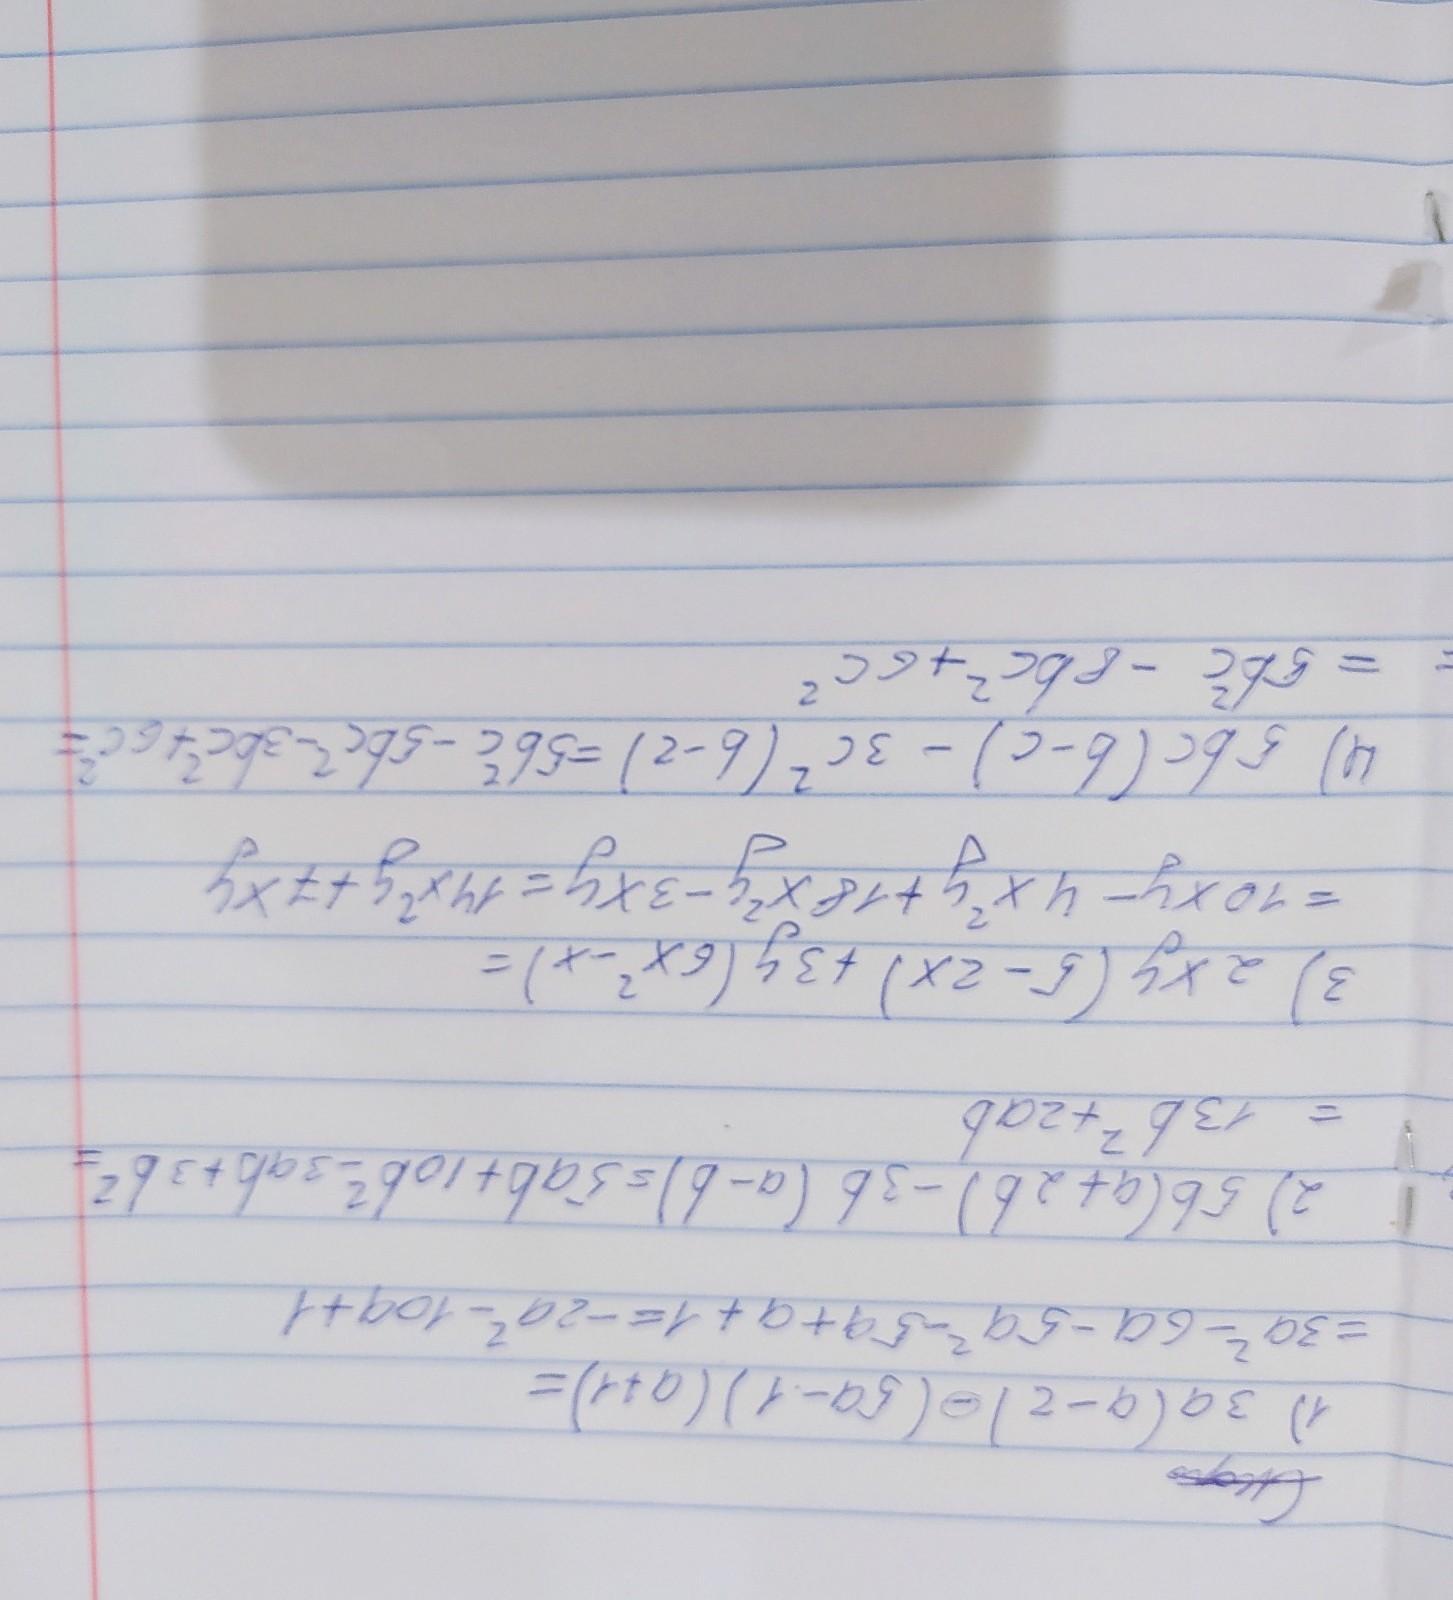 1) 3a(a-2)-(5a-1)(a+1)=
=3a²-6a-5a²-5a+a+1=-2a²-10a+1
2) 5b(a+2b)-3b(a-b)=5ab+10b²-3ab+3b²=
= 13b²+2ab
3) 2xy(5-2x)+3y(6x²-x)=
=10xy-4x²y+18x²y-3xy=14x²y+7xy
4) 5bc(b-c)-3c²(b-2)=5b²c-5bc²-3bc²+6c²=
= 5b²c-8bc²+6c²